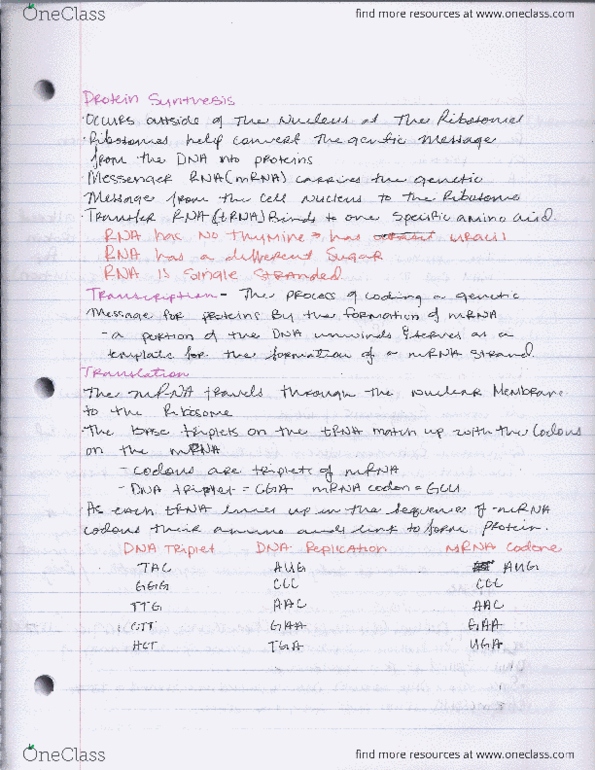 OneClass
find more resources at www.oneclass.com
Protein Synthesis
· Occurs outside of the Nucleus at the Ribosome
· Ribosomes help convert the genetic message
from the DNA into proteins
· Messenger RNA (mRNA) carries the genetic
Message from the cell Nucleus to the Ribosome
· Transfer RNA (tRNA) Binds to one specific amino acid.
RNA has No thymine → has uracil
RNA has a different Sugar
RNA is Single Stranded
Transcription - The process of coding a genetic
Message for proteins by the formation of mRNA
- a portion of the DNA unwinds & serves as a
template for the formation of a mRNA strand.
Translation
The mRNA travels through the Nuclear Membrane
to the Ribosome
· The base triplets on the tRNA match up with the Codons
on the mRNA
- codons are triplets of mRNA
- DNA triplet = CGA mRNA codon = GCU
· As each tRNA lines up in the sequence of mRNA
codons their amino acids link to form protein.
DNA Triplet DNA Replication MRNA Codone
TAC AUG AUG
GGG CCC CCC
TTG AAC AAC
CTT GAA GAA
ACT TGA UGA
OneClass
find more resources at www.oneclass.com